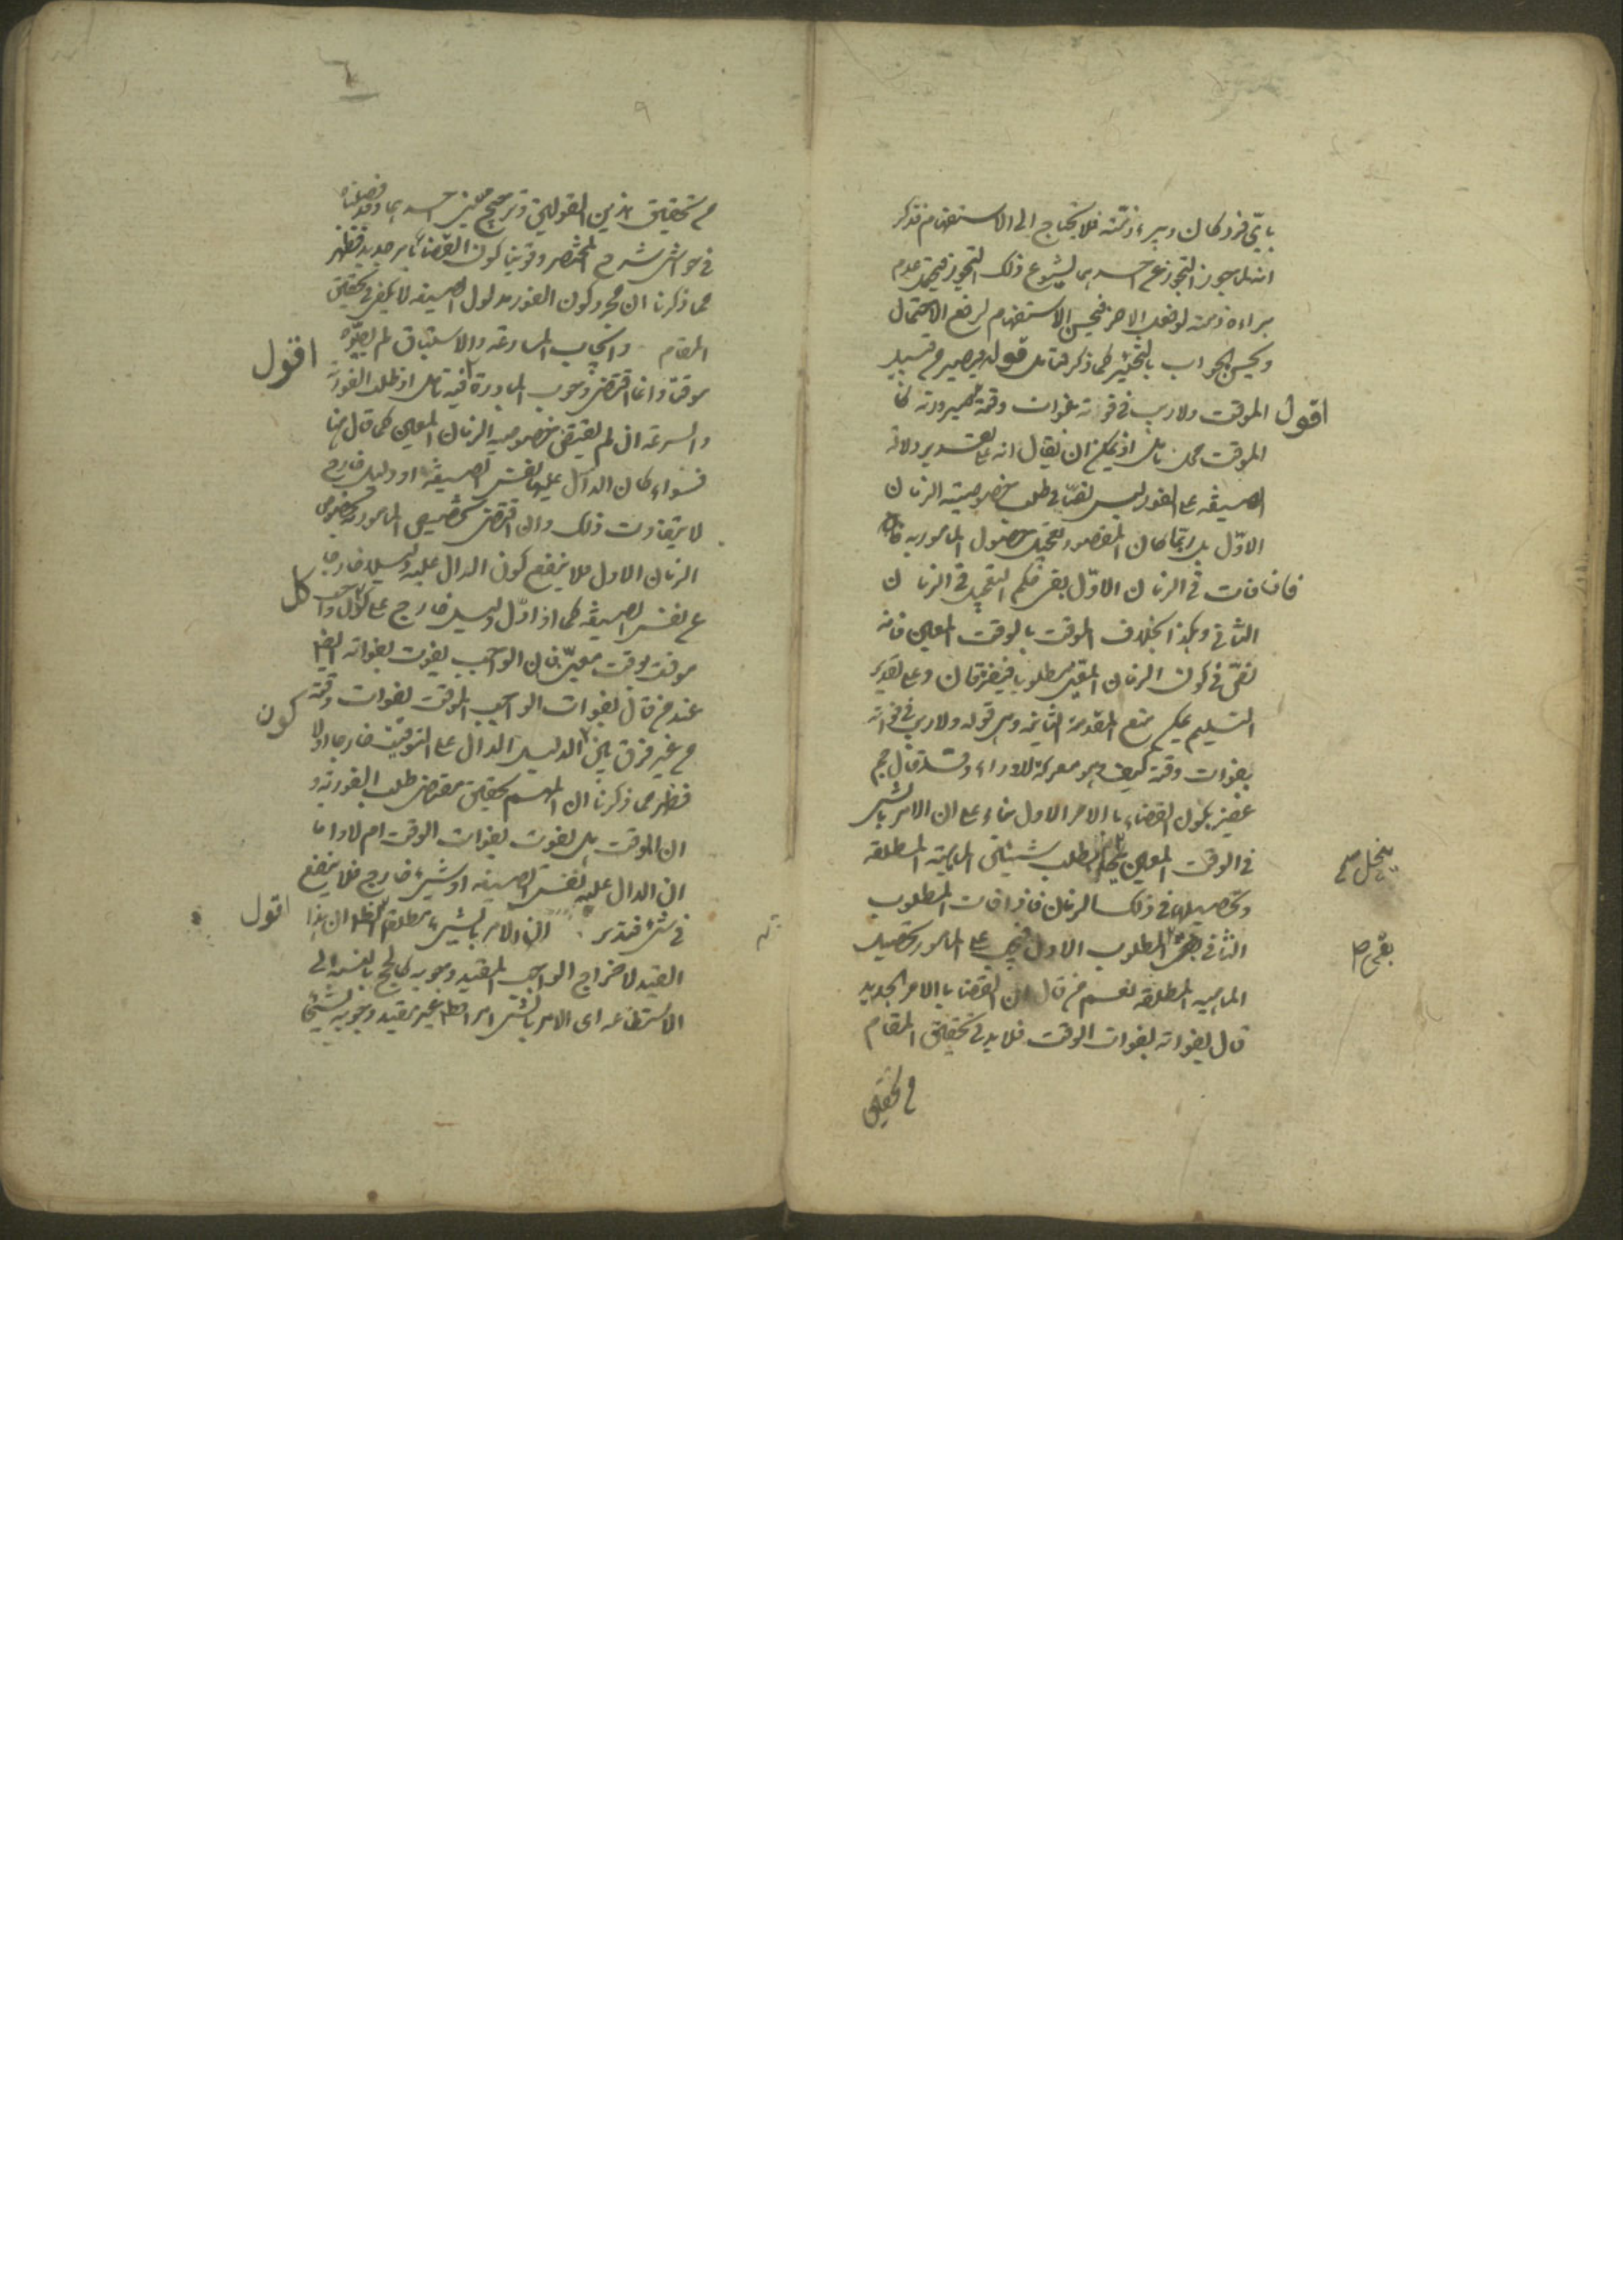 بايّ فرد كان ويبرء ذمّته فلا يحتاج الى الاستفهام فتذكر
انه هل يجوز التجوز عن احدهما لشيوع ذلك التجوز فيحتمل عدم
براءة ذمته لو فعل الاخر فيحسن الاستفهام لرفع الاحتمال
ويحسن الجواب بالتخيير كما ذكر فتامل قوله فيصير من قبيل
اقول الموقت ولا ريب في فواته بفوات وقته صيرورته كا
الموقت محل تامل اذ يمكن ان يقال انه على تقدير دلالة
الصيغة على الفور ليس نصّا في طلب خصوصية الزمان
الاوّل بل ربّما كان المقصود تعجيل حصول المامور به
فاذا فات في الزمان الاوّل بقى حكم التعجيل في الزمان
الثاني وهكذا بخلاف الموقت بالوقت المعين فانه
نصّ في كون الزمان المعين مطلوبا فيفترقان وعلى تقدير
التسليم يمكن منع المقدمة الثانية وهى قوله ولا ريب في فواته
بفوات وقته كيف وهو معركة للاراء وقد قال جم
غفير بكون القضاء بالامر الاول بناء على ان الامر بالشى
في الوقت المعين ينحل بطلب شيئين الماهية المطلقة
ينحل صح
وتحصيلها في ذلك الزمان فاذا فات المطلوب
الثاني بقى المطلوب الاول فيجب على المامور تحصيل
بقى ص
الماهية المطلقة نعم من قال ان القضا بالامر الجديد
قال بفواته بفوات الوقت فلا بد في تحقيق المقام
من تحقيق
من تحقيق هذين القولين وترجيح احدهما وقد فصلناه
في حواشى شرح المختصر وقوينا كون القضاء بامر جديد فظهر
مما ذكرنا ان مجرد كون الفور مدلول الصيغة لا يكفى في تحقيق
المقام وايجاب المسارعة والاستباق لم يصيّره
اقول
موقتا وانما اقتضى وجوب المبادرة فيه تامل اذ طلب الفورية
والسرعة ان لم يقتض خصوصية الزمان المعين كما قال هنا
فسواء كان الدال عليها نفس الصيغة او دليل خارج
لا يتفاوت ذلك وان اقتضى تخصيص المامور به بخصوص
الزمان الاول فلا ينفع كون الدال عليه دليلا خارجا
عن نفس الصيغة كما اذا دل دليل خارج على كون واجب
كل
موقت بوقت معيّن فان الواجب يفوت بفواته ايضا
عند من قال بفوات الواجب الموقت بفوات وقته
كون
من غير فرق بين الدليل الدال على التوقيت خارجا او لا
فظهر مما ذكرنا ان المهم تحقيق مقتضى طلب الفورية و
ان الموقت هل يفوت بفوات الوقت ام لا واما
ان الدال عليه نفس الصيغة او شيء خارج فلا ينفع
في شئ فتدبر الامر بالشيء مطلقا
اقول
القيد لاخراج الواجب المقيد وجوبه كالحج بالنسبة الى
الاستطاعة اى الامر بالشى امرا مطلقا غير مقيد وجوبه بشئ